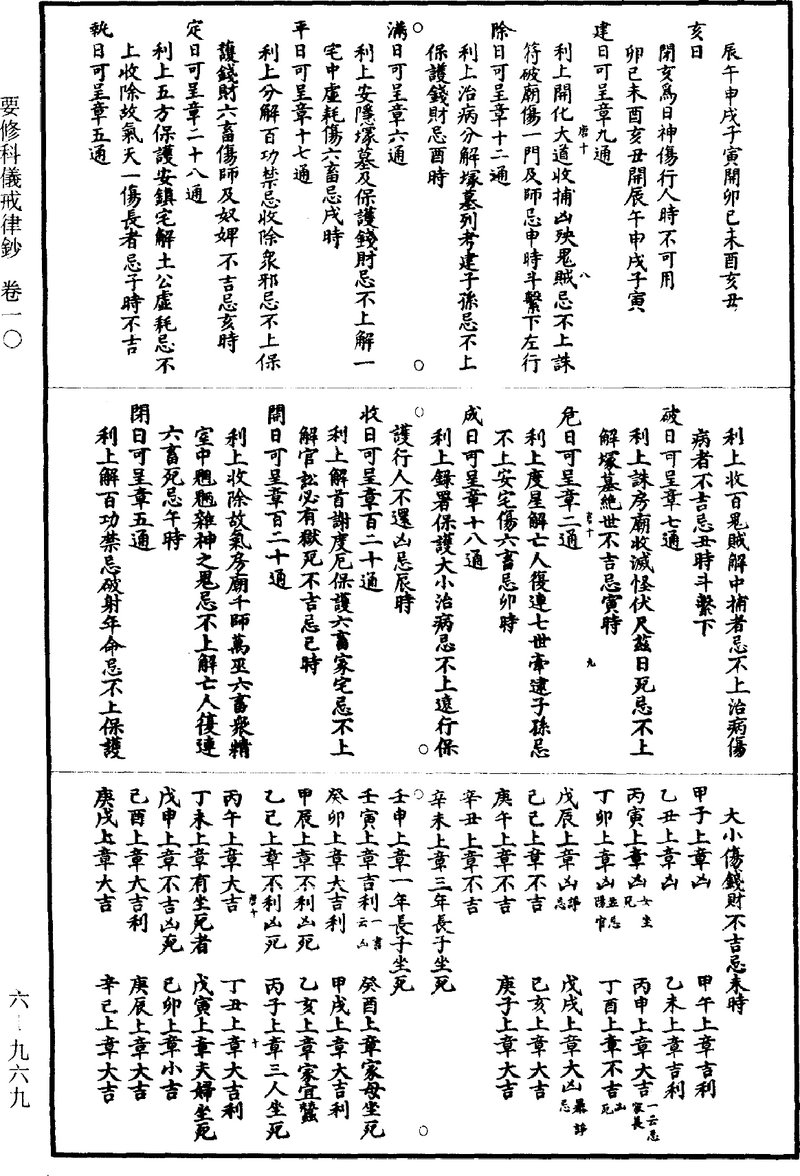 辰午申戌子寅開卯巳未酉亥丑
亥日
閉亥爲日神傷行人時不可用
卯巳未酉亥丑開辰午申戌子寅
建日可呈章九通
利上開化大道收捕凶殃鬼賊忌不上誅
符破廟傷一門及師忌申時斗繫下左行
除日可呈章十二通
利上治病分解塚墓列考逮子孫忌不上
保護錢財忌酉時
滿日可呈章六通
利上安隱塚墓及保護錢財忌不上解一
宅中虛耗傷六畜忌戌時
平日可呈章十七通
利上分解百功禁忌收除衆邪忌不上保
護錢財六畜傷師及奴婢不吉忌亥時
定日可呈章二十八通
利上五方保護安鎮宅解土公虛耗忌不
上收除故氣天一傷長者忌子時不吉
執日可呈章五通
利上收百鬼賊解中捕者忌不上治病傷
病者不吉忌丑時斗繫下
破日可呈章七通
利上誅房廟收滅怪伏尺茲日死忌不上
解塚墓絶世不吉忌寅時
危日可呈章二通
利上度星解亡人復連七世牽逮子孫忌
不上安宅傷六畜忌卯時
成日可呈章十八通
利上錄署保護大小治病忌不上遠行保
護行人不還凶忌辰時
收日可呈章百二十通
利上解首謝度厄保護六畜家宅忌不上
解官訟必有獄死不吉忌巳時
開日可呈章百二十通
利上收除故氣房廟千師萬巫六畜衆精
室中魍魎雜神之鬼忌不上解亡人復連
六畜死忌午時
閉日可呈章五通
利上解百功禁忌破射年命忌不上保護
大小傷錢財不吉忌未時
甲子上章凶 甲午上章吉利
乙丑上章凶 乙未上章吉利
丙寅上章凶女坐死 丙申上章大吉一云忌家長
丁卯上章凶並忌縣官 丁酉上章不吉凶死
戊辰上章凶諍忌 戊戌上章大凶縣諍忌
己巳上章不吉 己亥上章大吉
庚午上章不吉 庚子上章大吉
辛丑上章不吉
辛未上章三年長子坐死
壬申上章一年長子坐死
壬寅上章吉利一書云凶 癸酉上章家母坐死
癸卯上章大吉利 甲戌上章大吉利
甲辰上章不利凶死 乙亥上章家宜蠶
乙巳上章不利凶死 丙子上章三人坐死
丙午上章大吉 丁丑上章大吉利
丁未上章有坐死者 戊寅上章夫婦坐死
戊申上章不吉凶死 己卯上章小吉
己酉上章大吉利 庚辰上章大吉
庚戌上章大吉 辛巳上章大吉
要修科儀戒律鈔 卷一〇
六－九六九